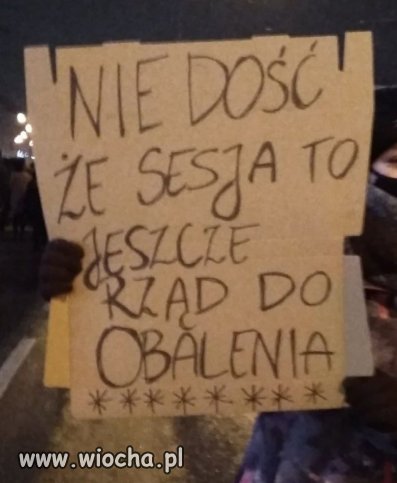 NIE DOŚĆ
ŻE SESJA TO
JESZCZE
RZĄD DO
OBALENIA
********
www.wiocha.pl